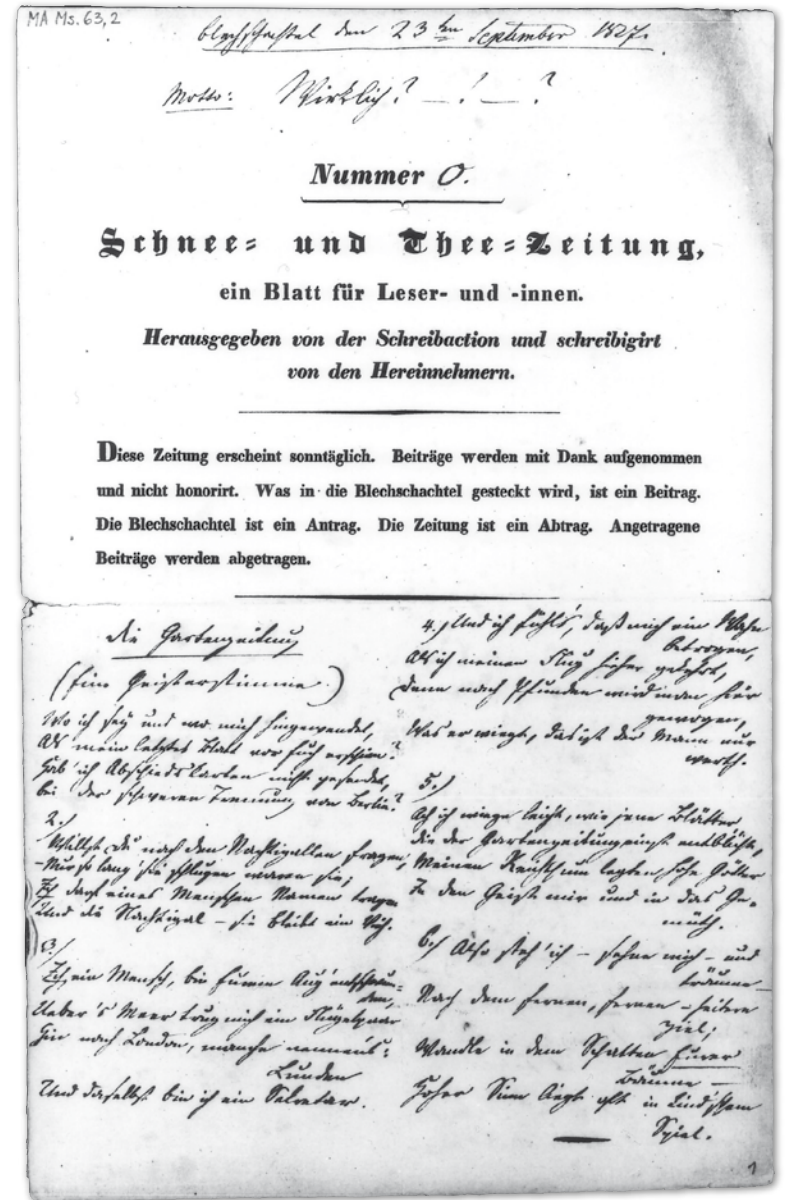 MA Ms. 63,2
Blechschachtel den 23ten September 1827.
Motto: Wirklich? — ! — ?
Nummer 0.
Schnee- und Thee-Zeitung,
ein Blatt für Leser- und -innen.
Herausgegeben von der Schreibaction und schreibigirt
von den Hereinnehmern.
Diese Zeitung erscheint sonntäglich. Beiträge werden mit Dank aufgenommen
und nicht honorirt. Was in die Blechschachtel gesteckt wird, ist ein Beitrag.
Die Blechschachtel ist ein Antrag. Die Zeitung ist ein Abtrag. Angetragene
Beiträge werden abgetragen.
die Gartenzeitung
(Eine Geisterstimme.)
Wo ich sey und wo mich hingewendet,
Als mein letztes Blatt vor Euch erschien?
Hab' ich Abschiedskarten nicht gesendet,
bei der schweren Trennung von Berlin?
2.)
Willst du nach den Nachtigallen fragen,
Nur so lang' sie schlugen waren sie;
Ich darf eines Menschen Namen tragen
Und die Nachtigal – sie bleibt ein Vieh.
3.)
Ich ein Mensch, bin Eurem Aug' entschwun-
den,
Ueber's Meer trug mich ein Flügelpaar
Hin nach London, manche nennen's:
Lunden
Und daselbst bin ich ein Secretar.
4.) Und ich fühl's, daß mich ein Wahn
betrogen,
Als ich meinen Flug hieher gekehrt,
Denn nach Pfunden wird man hier
gewogen,
Was er wiegt, das ist der Mann nur
werth.
5.)
Ach ich wiege leicht, wie jene Blätter
die der Gartenzeitung einst entblüht,
Meinen Reichthum legten, hohe Götter
In den Geist mir und in das Ge-
müth.
6.) Also steh' ich – sehne mich – und
träume –
Nach dem fernen, fernen – heitern
Ziel;
Wandle in dem Schatten Eurer
Bäume –
Hoher Sinn liegt oft in kind'schem
Spiel.
1